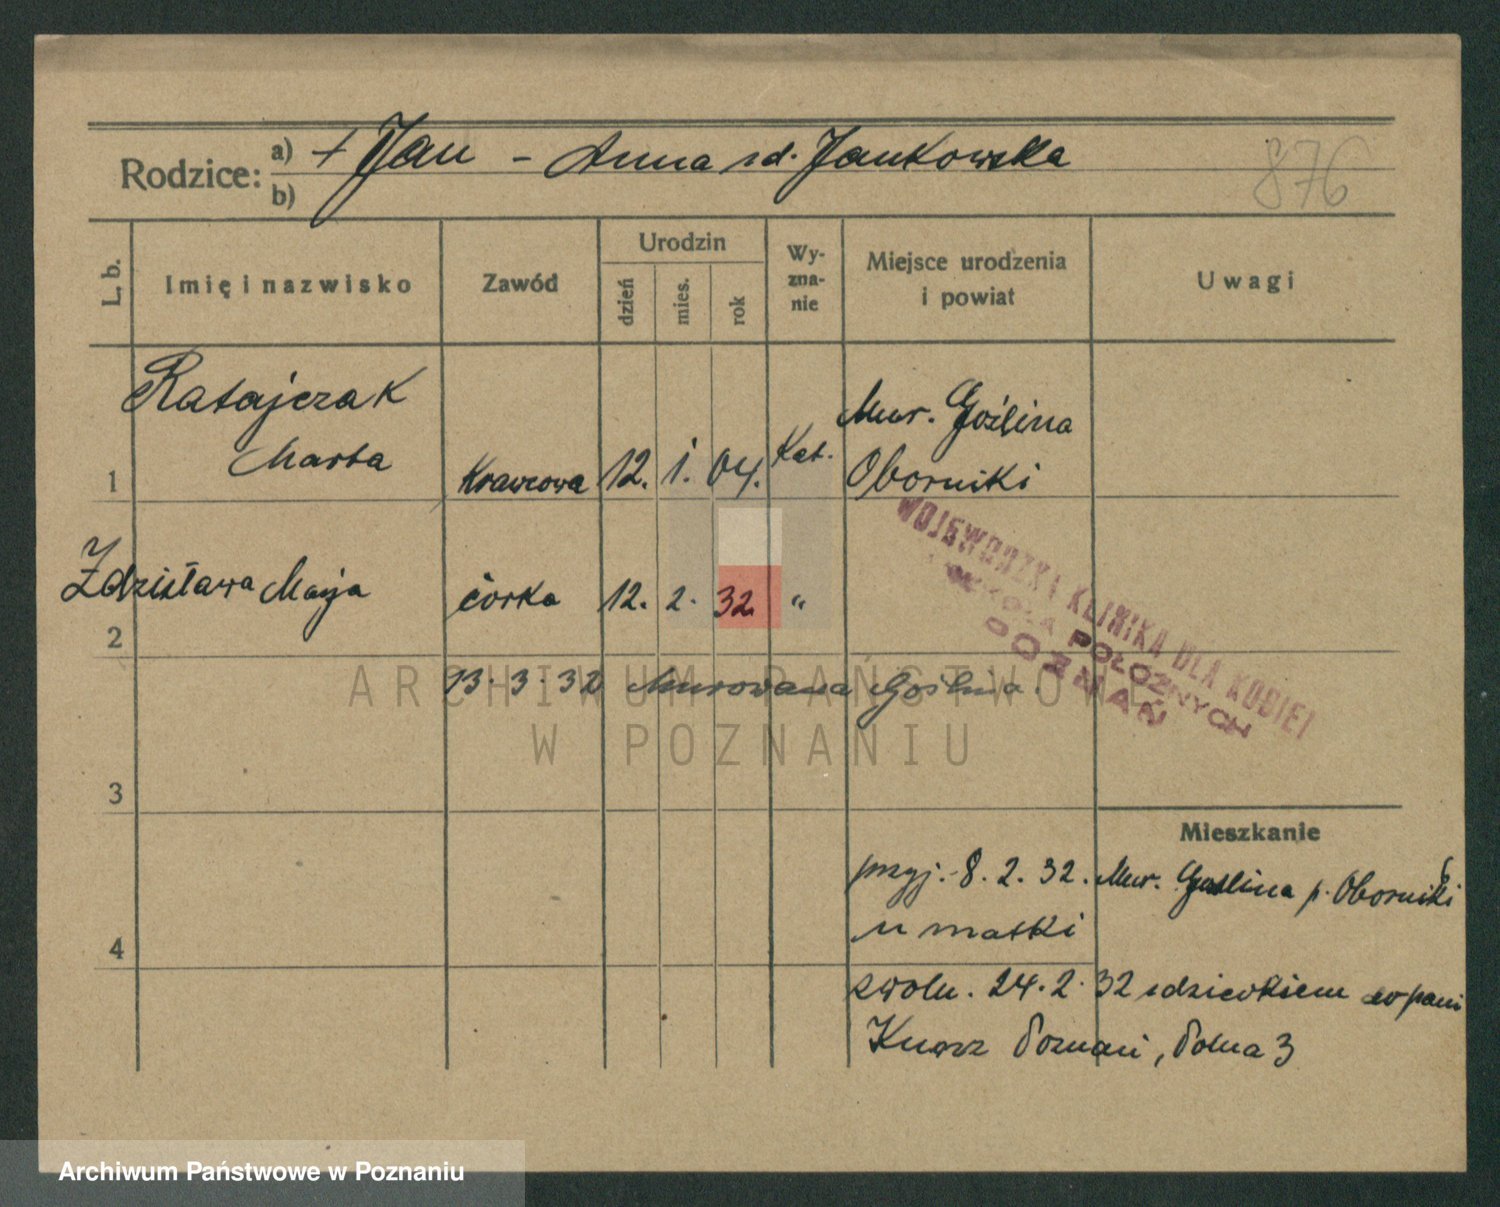 Rodzice: a) + Jan - Anna zd. Jankowska
b)
876
L. b.
Imię i nazwisko
Zawód
Urodzin
dzień
mies.
rok
Wy-
zna-
nie
Miejsce urodzenia
i powiat
Uwagi
Ratajczak
Marta
1
Krawcowa
12. 1. 04.
Kat.
Mur. Goślina
Oborniki
WOJEWÓDZKA KLINIKA DLA KOBIET
POŁOŻNYCH
POZNAŃ
Zdzisława Marja
2
córka
12. 2. 32.
"
13. 3. 32 Murowana Goślina.
ARCHIWUM PAŃSTWOWE
W POZNANIU
3
Mieszkanie
przyj. - 8. 2. 32. Mur. Goślina p. Oborniki
u matki
4
zwoln. 24. 2. 32 z dzieckiem do pani
Poznań, Polna 3
Archiwum Państwowe w Poznaniu